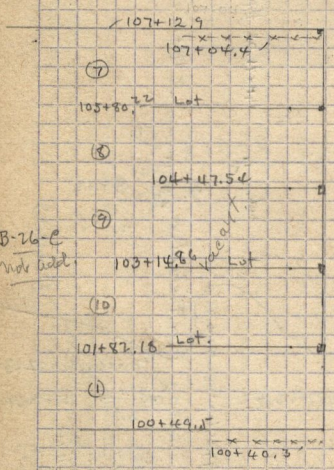 107+12.9
107+04.4
7
105+80.22 Lot
8
104+47.54
9
B-26-C
not add.
103+14.86 vacant Lot
10
101+82.18 Lot.
1
100+49.5
100+40.3